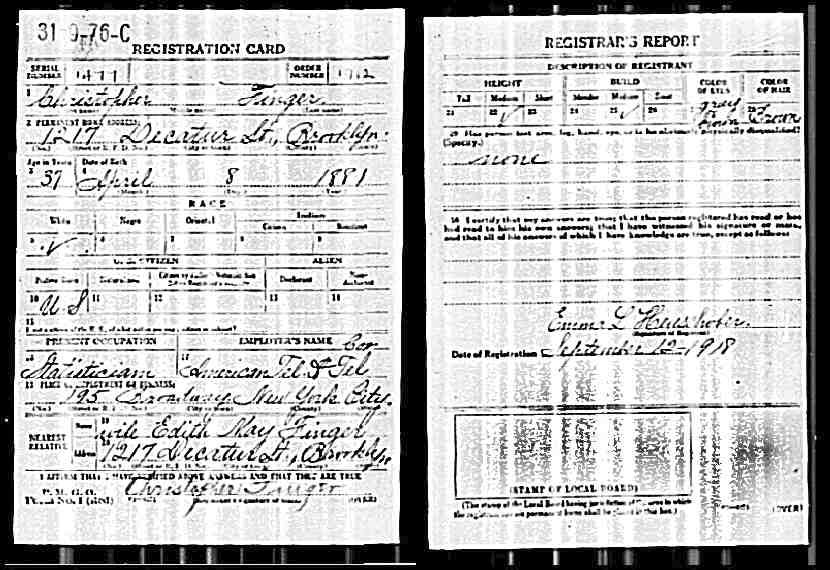 31-9-76-C
REGISTRATION CARD
SERIAL NUMBER
ORDER NUMBER
1 Christopher Finger
2 PERMANENT HOME ADDRESS:
1217 Decatur St., Brooklyn
Age in Years Date of Birth
37 April 8 1881
RACE
White Negro Oriental Indian
Citizen
5 ✓ 6 7 8 9
U. S. CITIZEN ALIEN
Native Born Naturalized Declarant Non-declarant
10 U S 11 12 13 14
15
PRESENT OCCUPATION EMPLOYER'S NAME
16 Statistician 17 American Tel & Tel Cor
18 PLACE OF EMPLOYMENT OR BUSINESS:
195 Broadway New York City.
NEAREST RELATIVE
Name 19 wife Edith May Finger
Address 1217 Decatur St., Brooklyn
I AFFIRM THAT I HAVE VERIFIED ABOVE ANSWERS AND THAT THEY ARE TRUE
P. M. G. O.
Form No. 1 (Red) Christopher Finger (OVER)
REGISTRAR'S REPORT
DESCRIPTION OF REGISTRANT
HEIGHT BUILD COLOR OF EYES COLOR OF HAIR
Tall Medium Short Slender Medium Stout
21 22 ✓ 23 24 25 ✓ 26 27 gray 28 Brown
29 Has person lost arm, leg, hand, eye, or is he obviously physically disqualified?
(Specify.)
none
30 I certify that my answers are true; that the person registered has read or has
had read to him his own answers; that I have witnessed his signature or mark,
and that all of his answers of which I have knowledge are true, except as follows:
Emma L
Date of Registration September 12-1918
(STAMP OF LOCAL BOARD)
(The stamp of the Local Board having jurisdiction of the area in which
the registrant has his permanent home shall be placed in this box.)
(OVER)